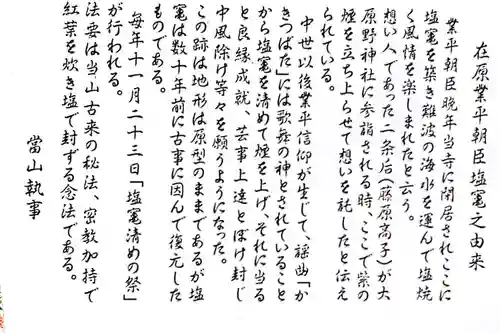 在原業平朝臣塩竃之由来
業平朝臣晩年当寺に閑居されここに
塩竃を築き難波の海水を運んで塩焼
く風情を楽しまれたと云う。
想い人であった二条后(藤原高子)が大
原野神社に参詣される時、ここで紫の
煙を立ち上らせて想いを託したと伝え
られている。
中世以後業平信仰が生じて、謡曲「か
きつばた」には歌舞の神とされていること
から塩竃を清めて煙を上げ、それに当る
と良縁成就、芸事上達とぼけ封じ
中風除け等々を願うようになった。
この跡は地形は原型のままであるが塩
竃は数十年前に古事に因んで復元した
ものである。
毎年十一月二十三日「塩竃清めの祭」
が行われる。
法要は当山古来の秘法、密教加持で
紅葉を炊き塩で封ずる念法である。
當山執事